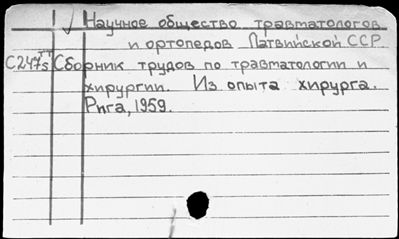 Научное общество травматологов
и ортопедов Латвийской ССР.
С247s Сборник трудов по травматологии и
хирургии. Из опыта хирурга.
Рига, 1959.